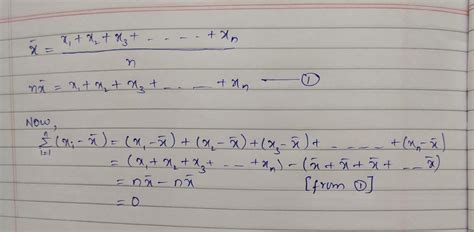 x̄ = (x₁ + x₂ + x₃ + - - - - + xₙ) / n
nx̄ = x₁ + x₂ + x₃ + - - - + xₙ —— ①
Now,
∑ᵢ₌₁ⁿ (xᵢ - x̄) = (x₁ - x̄) + (x₂ - x̄) + (x₃ - x̄) + - - - - + (xₙ - x̄)
= (x₁ + x₂ + x₃ + - - + xₙ) - (x̄ + x̄ + x̄ + - - x̄)
= nx̄ - nx̄ [from ①]
= 0